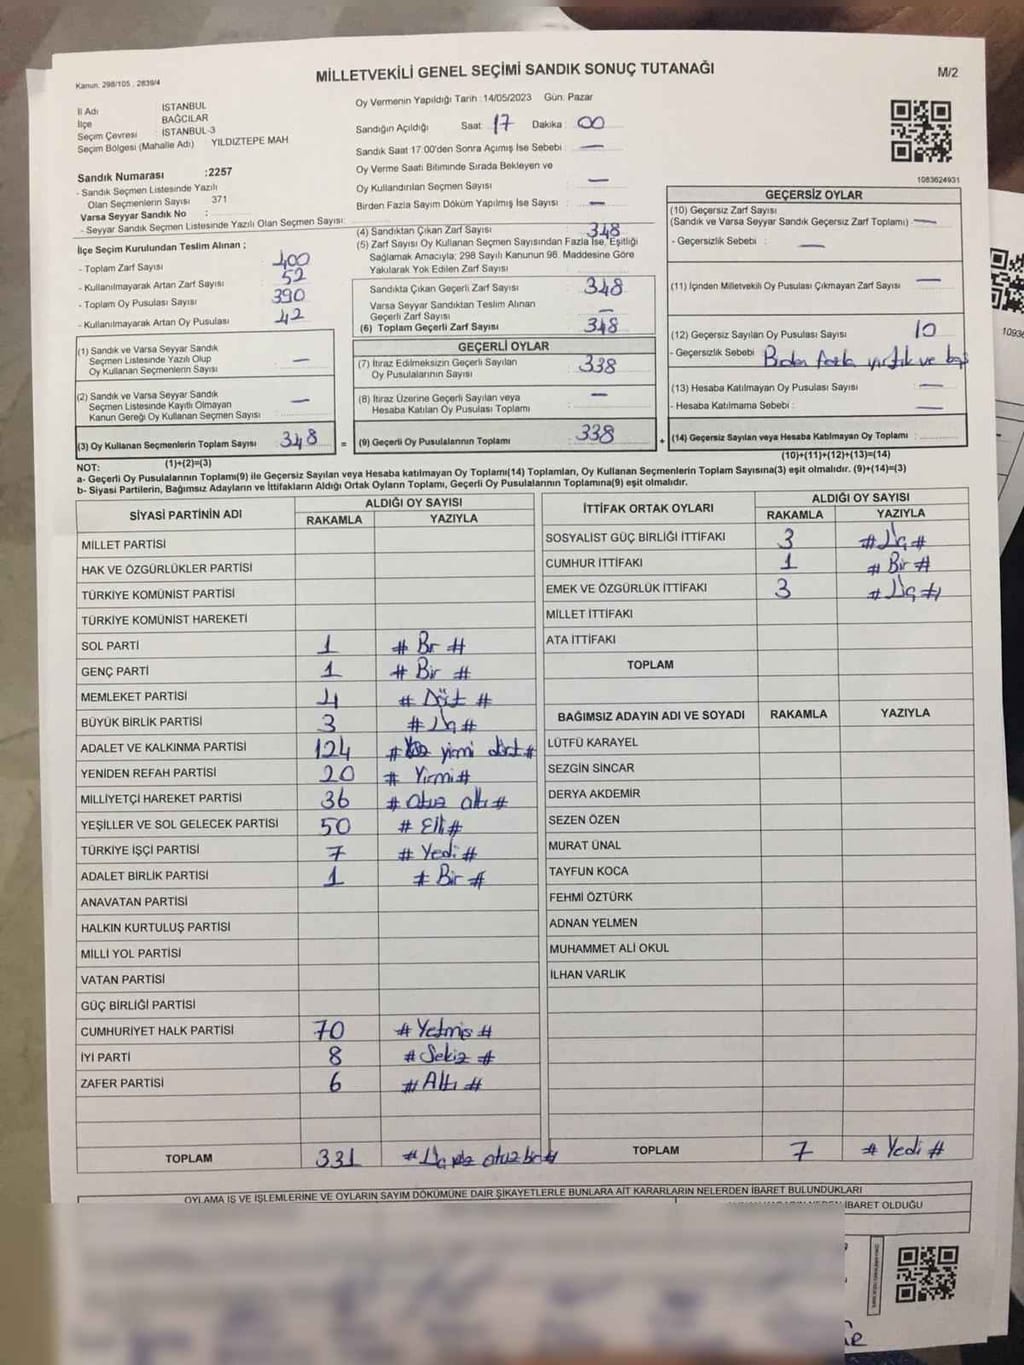 Kanun: 298/105 , 2839/4
MİLLETVEKİLİ GENEL SEÇİMİ SANDIK SONUÇ TUTANAĞI
M/2
İl Adı : İSTANBUL
İlçe : BAĞCILAR
Seçim Çevresi : İSTANBUL-3
Seçim Bölgesi (Mahalle Adı) YILDIZTEPE MAH
Oy Vermenin Yapıldığı Tarih :14/05/2023 Gün: Pazar
Sandığın Açıldığı Saat: 17 Dakika : 00
Sandık Saat 17:00'den Sonra Açımış İse Sebebi : —
Oy Verme Saati Bitiminde Sırada Bekleyen ve
Oy Kullandırılan Seçmen Sayısı —
Birden Fazla Sayım Döküm Yapılmış İse Sayısı : —
1083624931
Sandık Numarası :2257
- Sandık Seçmen Listesinde Yazılı
Olan Seçmenlerin Sayısı 371
Varsa Seyyar Sandık No :
- Seyyar Sandık Seçmen Listesinde Yazılı Olan Seçmen Sayısı:
İlçe Seçim Kurulundan Teslim Alınan ;
- Toplam Zarf Sayısı 400
- Kullanılmayarak Artan Zarf Sayısı 52
- Toplam Oy Pusulası Sayısı 390
- Kullanılmayarak Artan Oy Pusulası 42
(1) Sandık ve Varsa Seyyar Sandık
Seçmen Listesinde Yazılı Olup
Oy Kullanan Seçmenlerin Sayısı —
(2) Sandık ve Varsa Seyyar Sandık
Seçmen Listesinde Kayıtlı Olmayan
Kanun Gereği Oy Kullanan Seçmen Sayısı —
(3) Oy Kullanan Seçmenlerin Toplam Sayısı 348
(1)+(2)=(3)
(4) Sandıktan Çıkan Zarf Sayısı 348
(5) Zarf Sayısı Oy Kullanan Seçmen Sayısından Fazla İse, Eşitliği
Sağlamak Amacıyla; 298 Sayılı Kanunun 98. Maddesine Göre
Yakılarak Yok Edilen Zarf Sayısı
Sandıkta Çıkan Geçerli Zarf Sayısı 348
Varsa Seyyar Sandıktan Teslim Alınan
Geçerli Zarf Sayısı —
(6) Toplam Geçerli Zarf Sayısı 348
GEÇERLİ OYLAR
(7) İtiraz Edilmeksizin Geçerli Sayılan
Oy Pusulalarının Sayısı 338
(8) İtiraz Üzerine Geçerli Sayılan veya
Hesaba Katılan Oy Pusulası Toplamı —
= (9) Geçerli Oy Pusulalarının Toplamı 338
GEÇERSİZ OYLAR
(10) Geçersiz Zarf Sayısı
(Sandık ve Varsa Seyyar Sandık Geçersiz Zarf Toplamı) —
- Geçersizlik Sebebi : —
(11) İçinden Milletvekili Oy Pusulası Çıkmayan Zarf Sayısı —
(12) Geçersiz Sayılan Oy Pusulası Sayısı 10
- Geçersizlik Sebebi fazla yırtık ve
(13) Hesaba Katılmayan Oy Pusulası Sayısı —
- Hesaba Katılmama Sebebi : —
+ (14) Geçersiz Sayılan veya Hesaba Katılmayan Oy Toplamı :
(10)+(11)+(12)+(13)=(14)
NOT:
a- Geçerli Oy Pusulalarının Toplamı(9) ile Geçersiz Sayılan veya Hesaba katılmayan Oy Toplamı(14) Toplamları, Oy Kullanan Seçmenlerin Toplam Sayısına(3) eşit olmalıdır. (9)+(14)=(3)
b- Siyasi Partilerin, Bağımsız Adayların ve İttifakların Aldığı Ortak Oyların Toplamı, Geçerli Oy Pusulalarının Toplamına(9) eşit olmalıdır.
SİYASİ PARTİNİN ADI ALDIĞI OY SAYISI
RAKAMLA YAZIYLA
MİLLET PARTİSİ
HAK VE ÖZGÜRLÜKLER PARTİSİ
TÜRKİYE KOMÜNİST PARTİSİ
TÜRKİYE KOMÜNİST HAREKETİ
SOL PARTİ 1 # Br #
GENÇ PARTİ 1 # Bir #
MEMLEKET PARTİSİ 4 # Döt #
BÜYÜK BİRLİK PARTİSİ 3 # Üç #
ADALET VE KALKINMA PARTİSİ 124 # Yüz yirmi dört #
YENİDEN REFAH PARTİSİ 20 # Yirmi #
MİLLİYETÇİ HAREKET PARTİSİ 36 # Otuz altı #
YEŞİLLER VE SOL GELECEK PARTİSİ 50 # Elli #
TÜRKİYE İŞÇİ PARTİSİ 7 # Yedi #
ADALET BİRLİK PARTİSİ 1 # Bir #
ANAVATAN PARTİSİ
HALKIN KURTULUŞ PARTİSİ
MİLLİ YOL PARTİSİ
VATAN PARTİSİ
GÜÇ BİRLİĞİ PARTİSİ
CUMHURİYET HALK PARTİSİ 70 # Yetmiş #
İYİ PARTİ 8 # Sekiz #
ZAFER PARTİSİ 6 # Altı #
TOPLAM 331 # Üç yüz otuz bir #
İTTİFAK ORTAK OYLARI ALDIĞI OY SAYISI
RAKAMLA YAZIYLA
SOSYALİST GÜÇ BİRLİĞİ İTTİFAKI 3 # Üç #
CUMHUR İTTİFAKI 1 # Bir #
EMEK VE ÖZGÜRLÜK İTTİFAKI 3 # Üç #
MİLLET İTTİFAKI
ATA İTTİFAKI
TOPLAM
BAĞIMSIZ ADAYIN ADI VE SOYADI RAKAMLA YAZIYLA
LÜTFÜ KARAYEL
SEZGİN SİNCAR
DERYA AKDEMİR
SEZEN ÖZEN
MURAT ÜNAL
TAYFUN KOCA
FEHMİ ÖZTÜRK
ADNAN YELMEN
MUHAMMET ALİ OKUL
İLHAN VARLIK
TOPLAM 7 # Yedi #
OYLAMA İŞ VE İŞLEMLERİNE VE OYLARIN SAYIM DÖKÜMÜNE DAİR ŞİKAYETLERLE BUNLARA AİT KARARLARIN NELERDEN İBARET BULUNDUKLARI
İBARET OLDUĞU